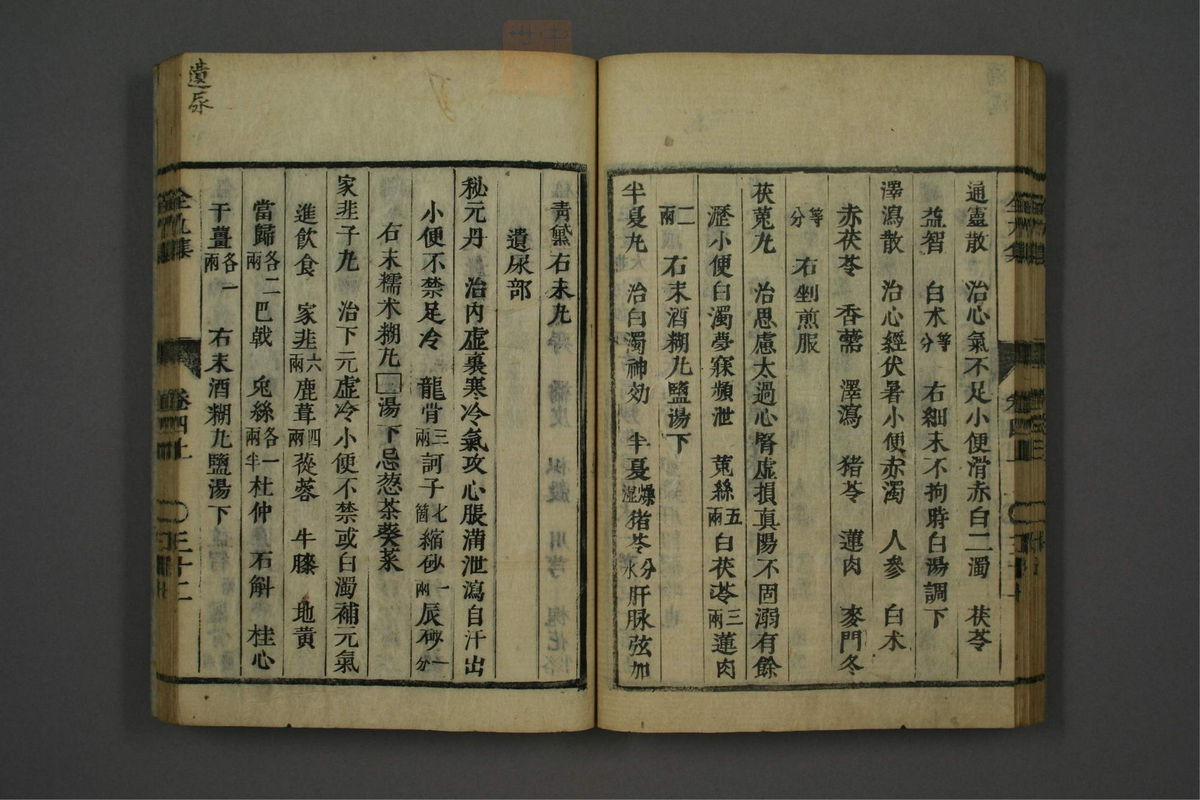 通靈散　治心氣不足小便滑赤白二濁　茯苓
益智　白朮等分　右細末不拘時白湯調下
澤瀉散　治心經伏暑小便赤濁　人參　白朮
赤茯苓　香薷　澤瀉　猪苓　蓮肉　麥門冬
等分　右剉煎服
茯菟丸　治思慮太過心腎虛損真陽不固溺有餘
瀝小便白濁夢寐頻泄　菟絲五兩　白茯苓三兩　蓮肉
二兩　右末酒糊丸鹽湯下
半夏丸　治白濁神効　半夏燥湿　猪苓分水　肝脉弦加
青黛右末丸
遺尿部
秘元丹　治內虛裏寒冷氣攻心脹滿泄瀉自汗出
小便不禁足冷　龍骨三兩　訶子七箇　縮砂一兩　辰砂一分
右末糯米糊丸　湯下忌葱茶葵菜
家韭子丸　治下元虛冷小便不禁或白濁補元氣
進飲食　家韭六兩　鹿茸四兩　蓯蓉　牛膝　地黄
當歸各二兩　巴戟　兎絲各一兩半　杜仲　石斛　桂心
干薑各一兩　右末酒糊丸鹽湯下
全九集
卷四上
三十二
遺尿